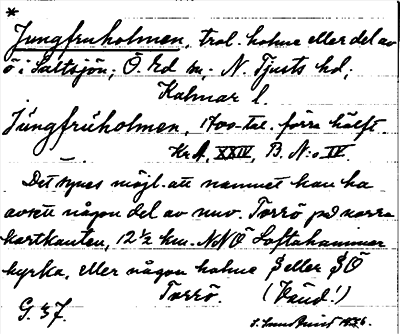 *
Jungfruholmen, trol. holme eller del av
ö i Saltsjön; Ö. Ed sn; N. Tjusts hd;
Kalmar l.
Jungfruholmen, 1700-tal. förra hälft.
Kr A, XXIV, B. N:o IV.
Det synes möjl. att namnet kan ha
avsett någon del av nuv. Torrö på norra
kartkanten, 12½ km. NNÖ Loftahammar
kyrka, eller någon holme S eller SÖ
Torrö. (Känd!)
G. 37.